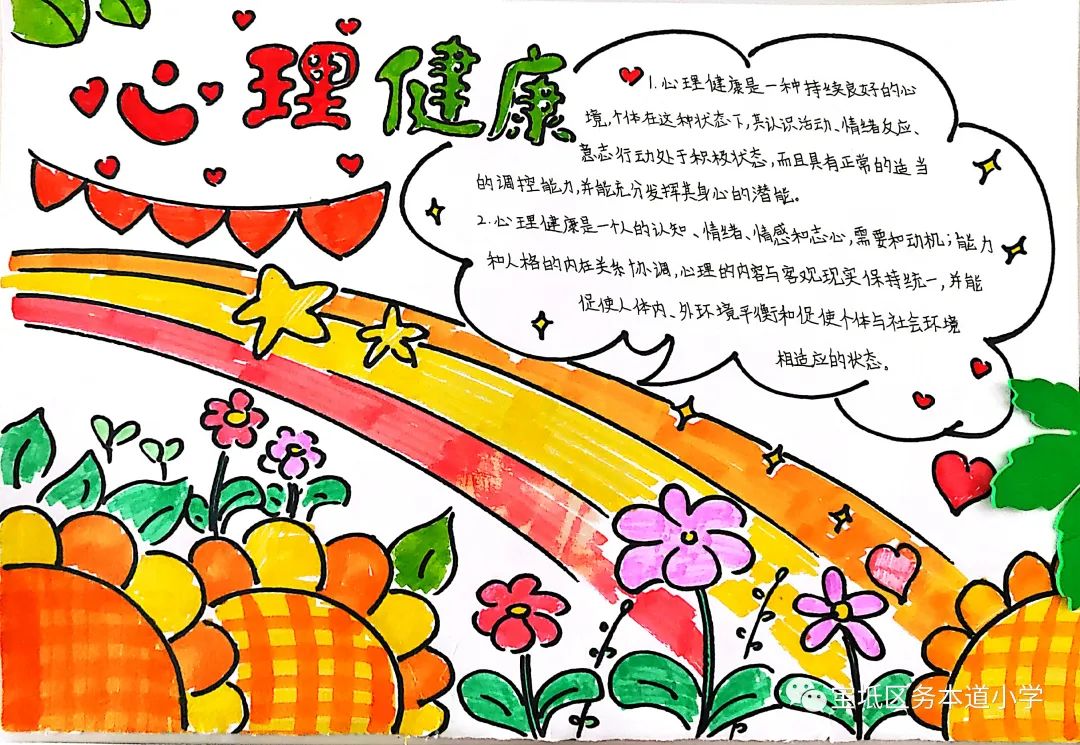 心理健康
1.心理健康是一种持续良好的心
境,个体在这种状态下,其认识活动、情绪反应、
意志行动处于积极状态,而且具有正常的适当
的调控能力,并能充分发挥其身心的潜能。
2.心理健康是一个人的认知、情绪、情感和志心,需要和动机;能力
和人格的内在关系协调,心理的内容与客观现实保持统一,并能
促使人体内、外环境平衡和促使个体与社会环境
相适应的状态。
宝坻区务本道小学